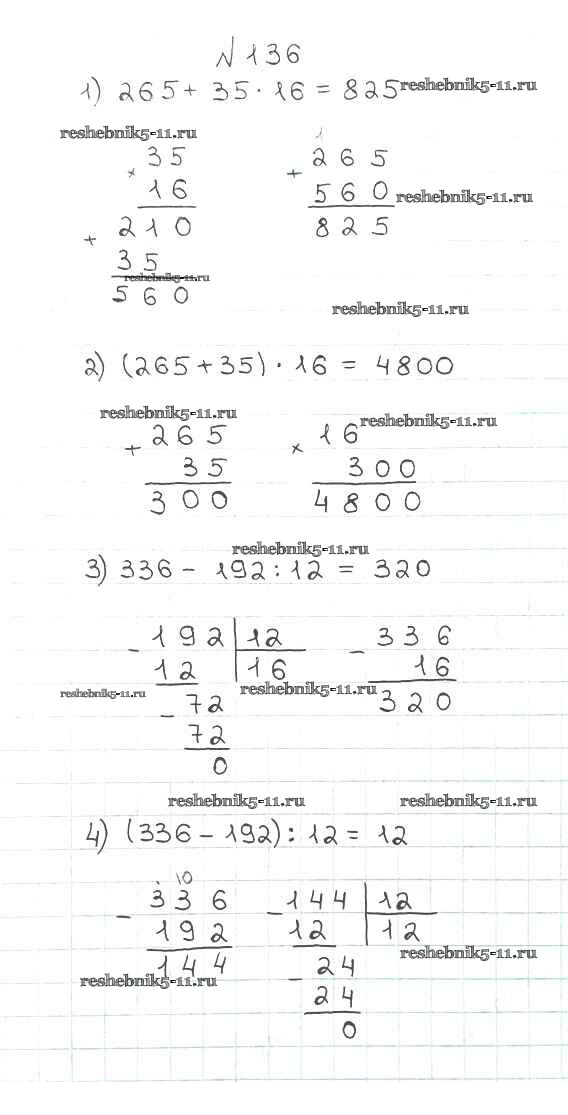 №136
1) 265 + 35 · 16 = 825 reshebnik5-11.ru
reshebnik5-11.ru
× 35
16
210
+ 35
reshebnik5-11.ru
560
1
+ 265
560 reshebnik5-11.ru
825
reshebnik5-11.ru
2) (265 + 35) · 16 = 4800
reshebnik5-11.ru
+ 265
35
300
reshebnik5-11.ru
× 16
300
4800
reshebnik5-11.ru
3) 336 - 192 : 12 = 320
- 192 | 12
12 | 16
- 72
72
0
reshebnik5-11.ru
reshebnik5-11.ru
- 336
16
320
reshebnik5-11.ru
reshebnik5-11.ru
4) (336 - 192) : 12 = 12
. 10
- 336
192
144
reshebnik5-11.ru
- 144 | 12
12 | 12
reshebnik5-11.ru
- 24
24
0